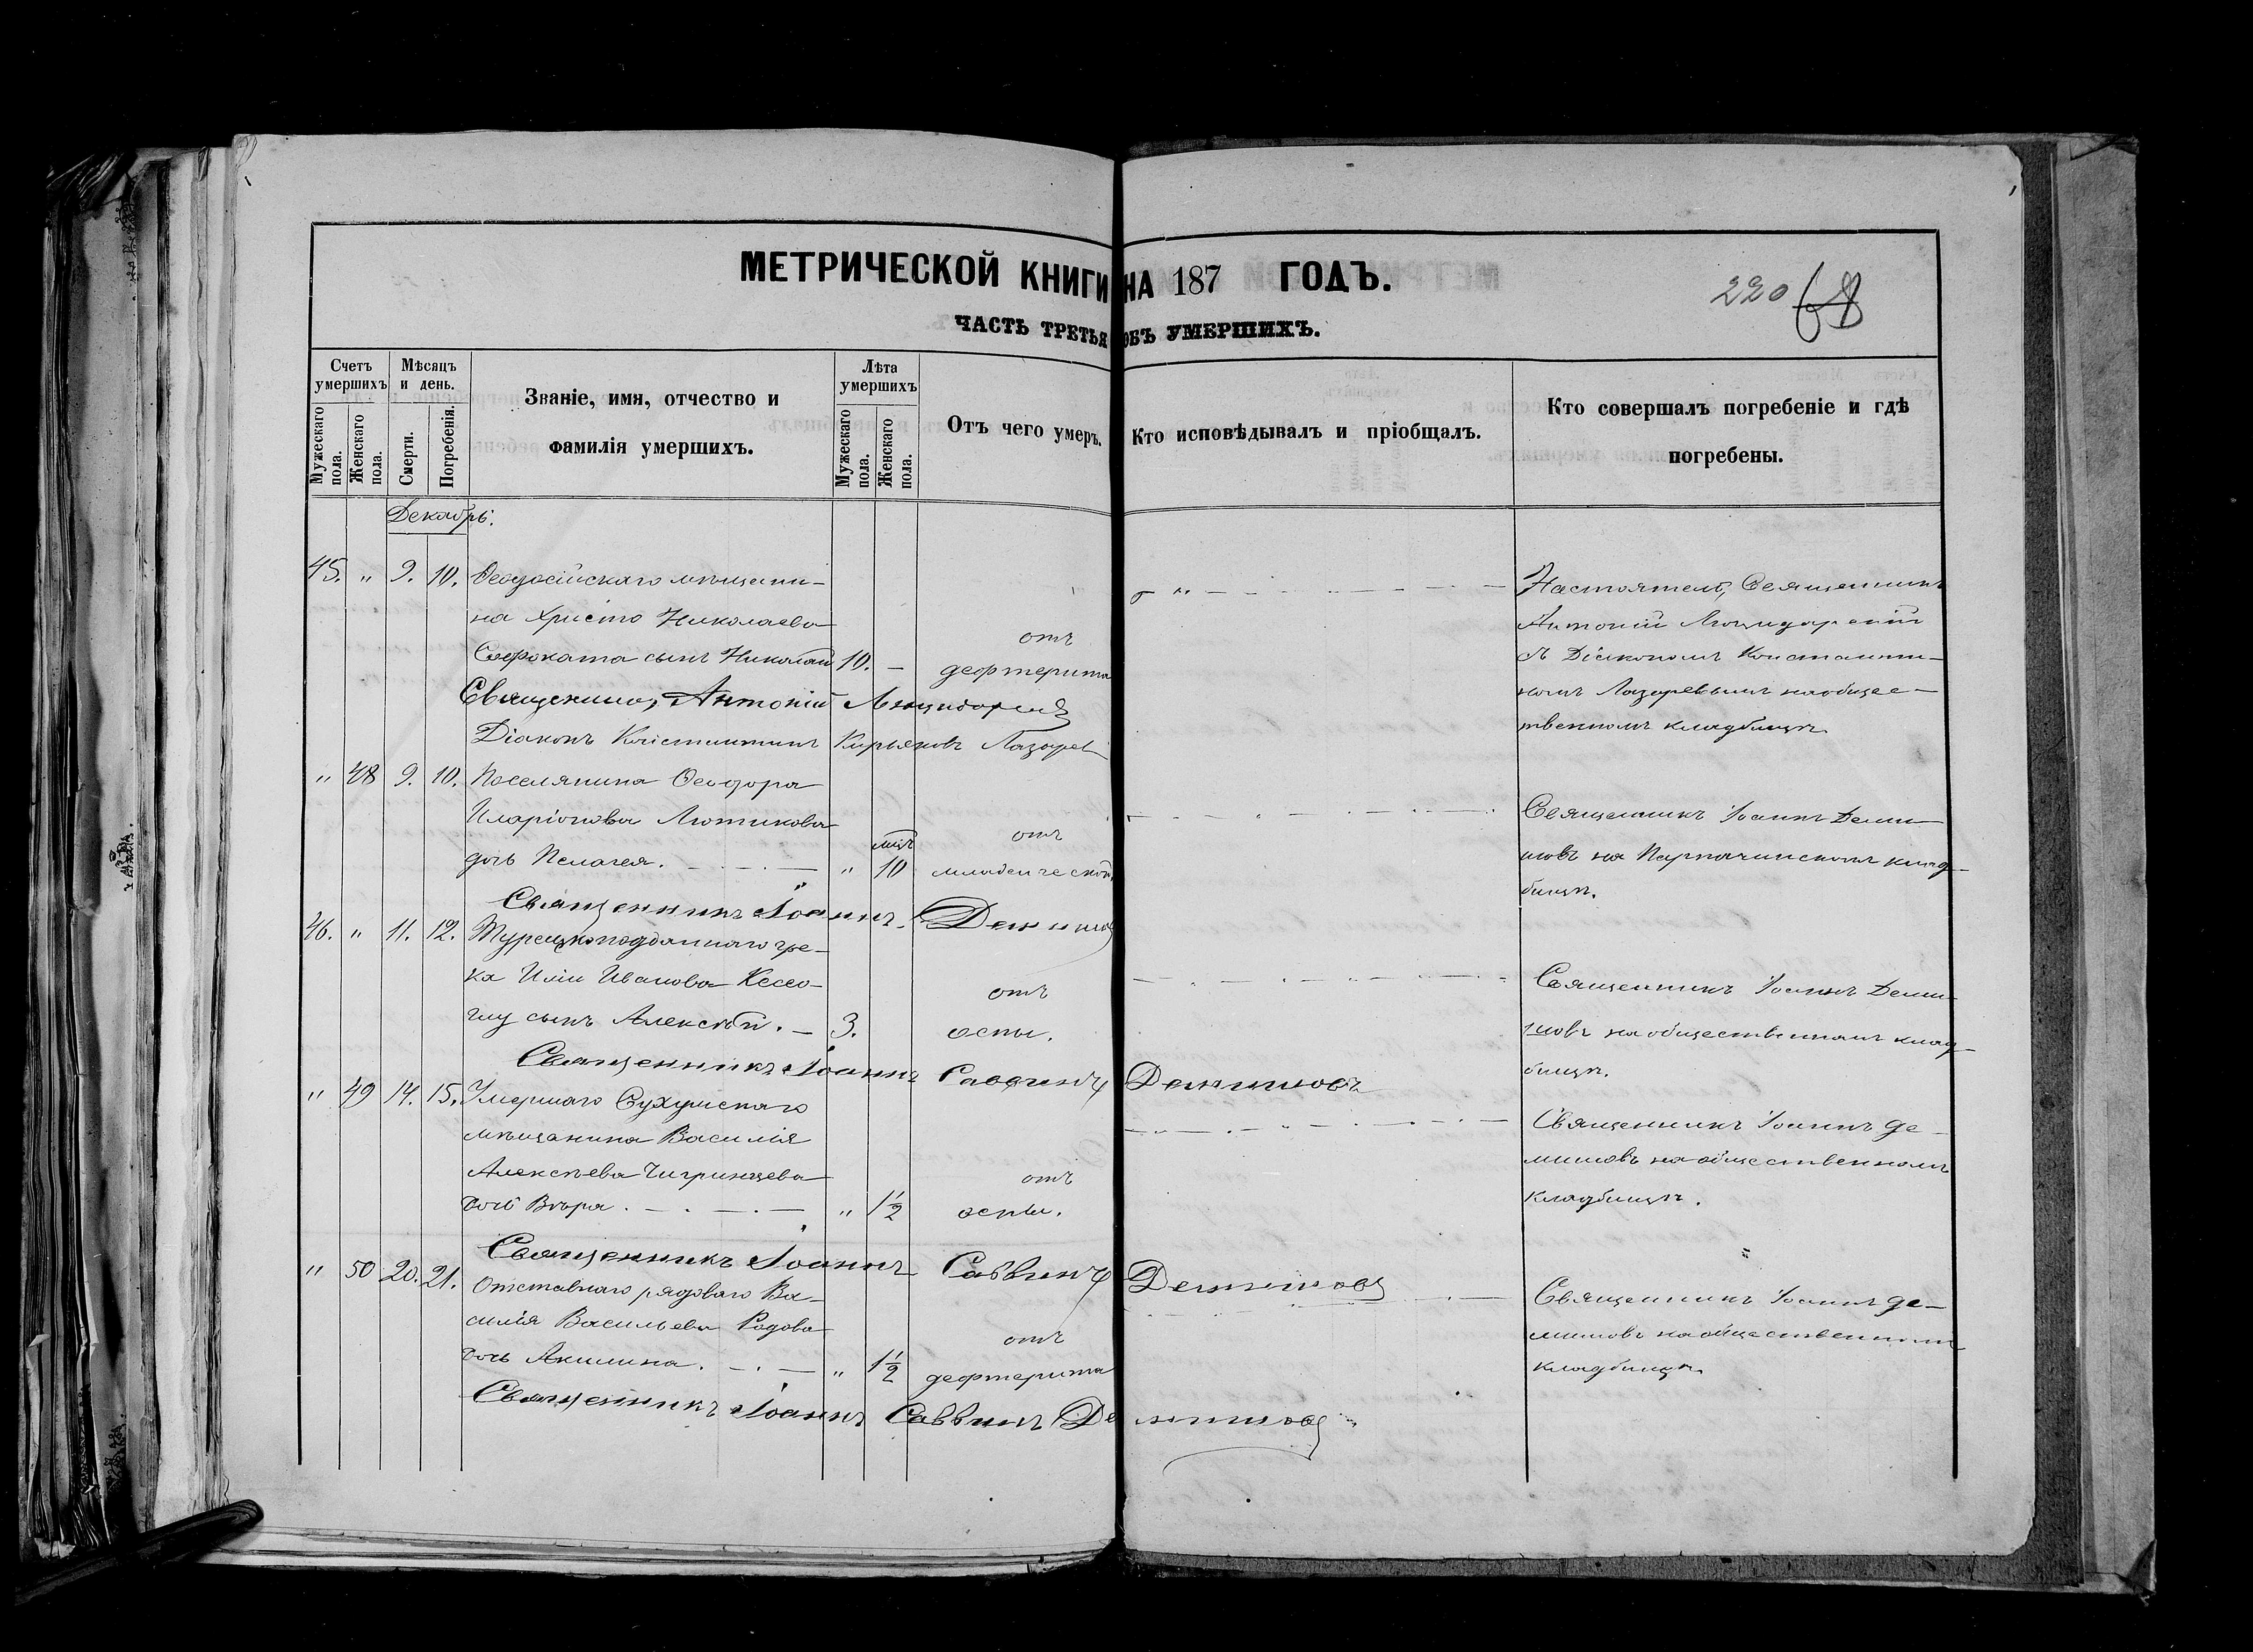 МЕТРИЧЕСКОЙ КНИГИ НА 187 ГОДЪ.
220 68
ЧАСТЬ ТРЕТЬЯ ОБЪ УМЕРШИХЪ.
Счетъ умершихъ
Мужескаго пола.
Женскаго пола.
Мѣсяцъ и день.
Смерти.
Погребенія.
Званіе, имя, отчество и
фамилія умершихъ.
Лѣта умершихъ
Мужескаго пола.
Женскаго пола.
Отъ чего умеръ.
Кто исповѣдывалъ и пріобщалъ.
Кто совершалъ погребеніе и гдѣ
погребены.
Декабрь.
45. " 9. 10. Ѳеодосійскаго мѣщани-
на Христо Николаева
сынъ Николай 10. —
отъ
дефтерита
Настоятель, Священникъ
Антоній
съ Діакономъ Константи-
номъ Лазаревымъ на общес-
твенномъ кладбищѣ.
Священникъ Антоній
Діаконъ Константинъ Кирьяковъ Лазарев
" 48 9. 10. Поселянина Ѳеодора
Иларіонова Лютикова
дочь Пелагея. " мцъ 10
отъ
младенческой
Священникъ Іоаннъ Деми-
мовъ на клад-
бищѣ.
Священникъ Іоаннъ
46. " 11. 12. Турецкоподданнаго гре-
ка Иліи Иванова Кесео-
глу сынъ Алексѣй. — 3.
отъ
оспы.
Священникъ Іоаннъ
на общественномъ клад-
бищѣ.
Священникъ Іоаннъ Саввинъ
" 49 14. 15. Умершаго Сухумскаго
мѣщанина Василія
Алексѣева Чигринцева
дочь Вѣра. " 1½
отъ
оспы.
Священникъ Іоаннъ
на общественномъ
кладбищѣ.
Священникъ Іоаннъ Саввинъ
" 50 20. 21. Отставнаго рядоваго Ва-
силія Васильева Родова
дочь Акилина. " 1½
отъ
дефтерита
Священникъ Іоаннъ
на общественномъ
кладбищѣ
Священникъ Іоаннъ Саввинъ